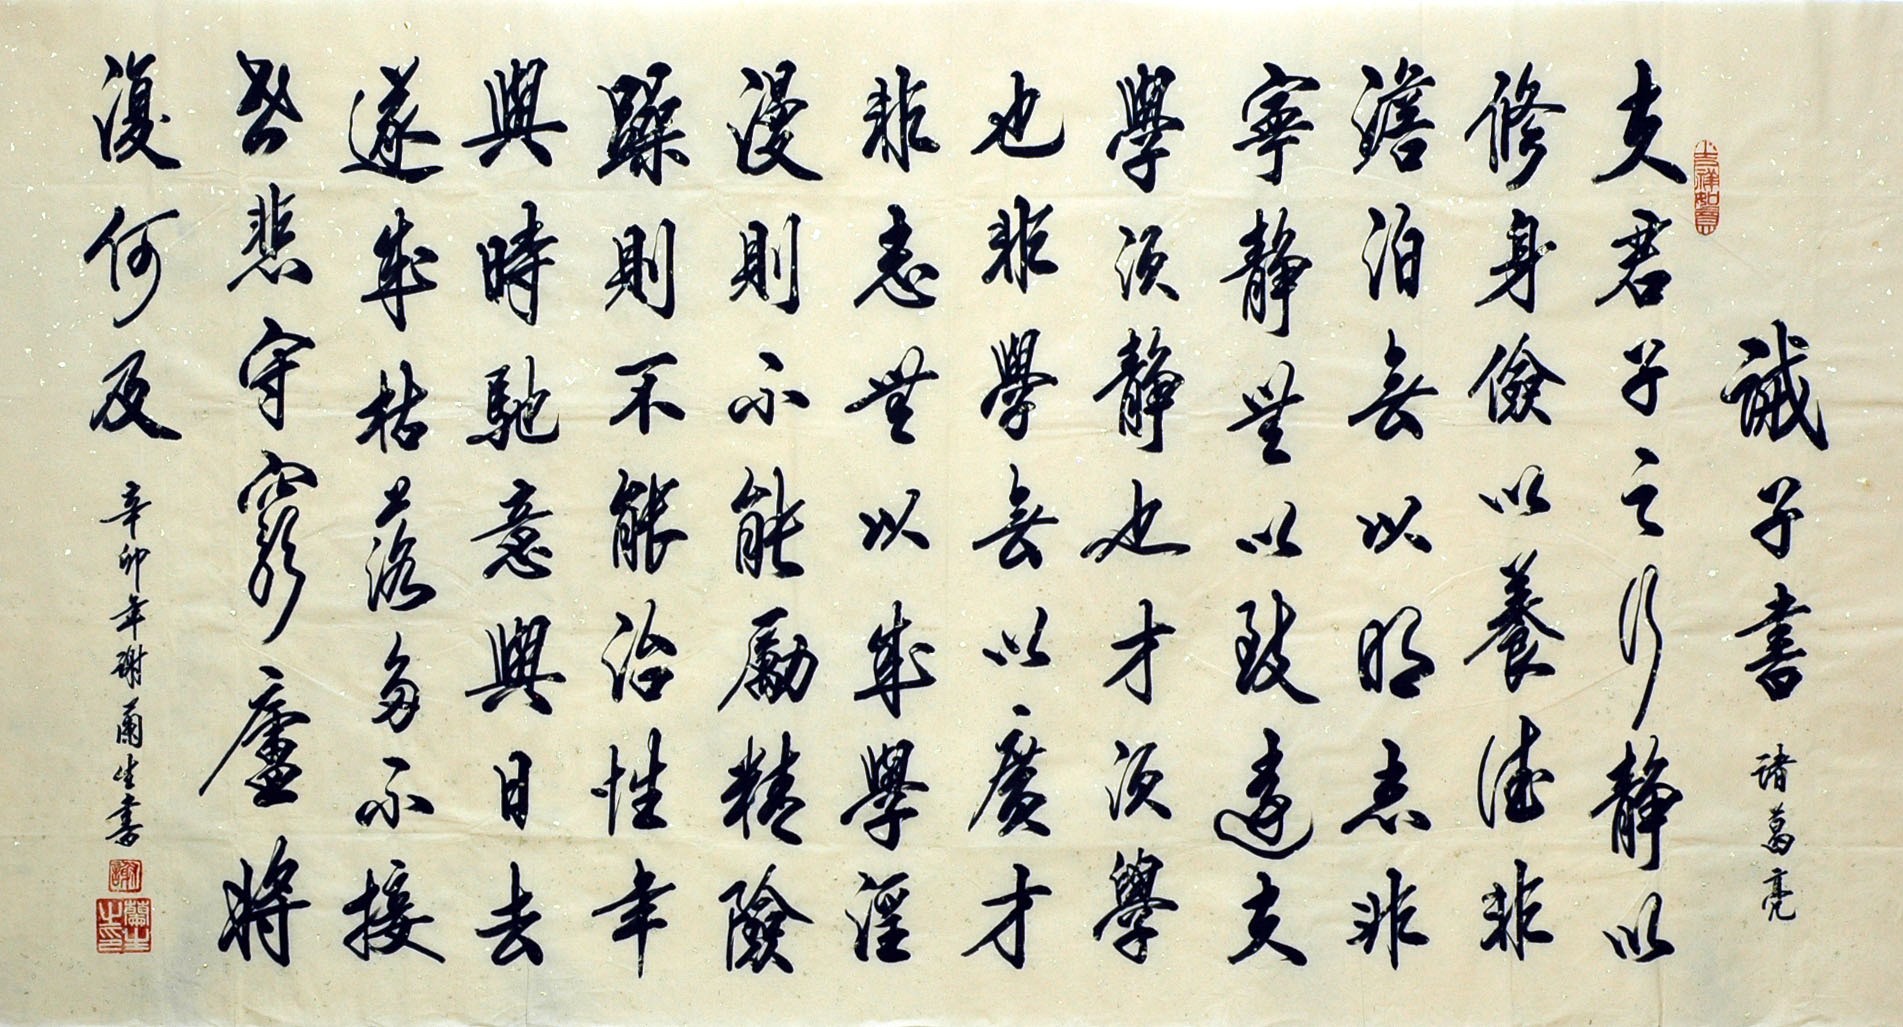 誡子書 諸葛亮
吉祥如意
夫君子之行静以
修身儉以養德非
澹泊無以明志非
寧静無以致遠夫
學須静也才須學
也非學無以廣才
非志無以成學淫
漫則不能勵精險
躁則不能治性年
與時馳意與日去
遂成枯落多不接
世悲守窮廬將
復何及
辛卯年謝蘭生書
謝
蘭生之印